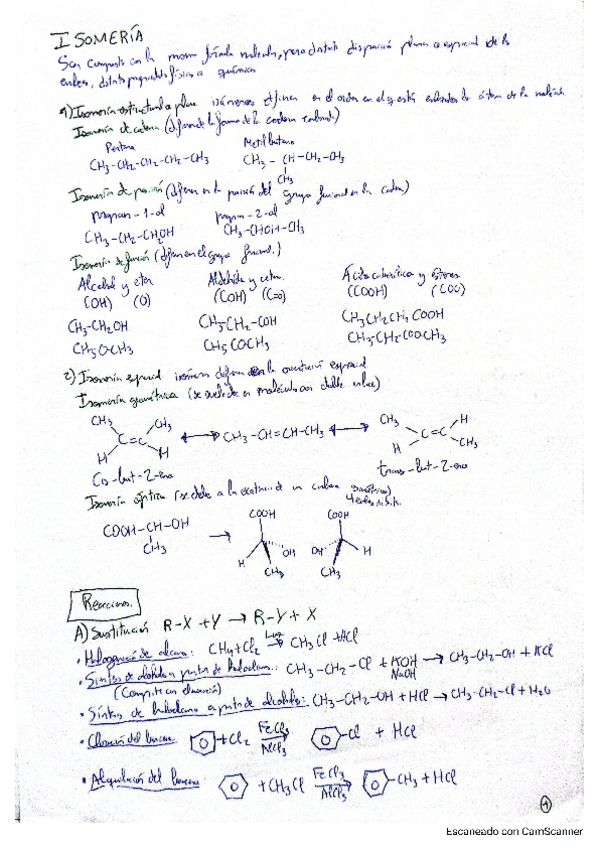 ISOMERÍA
Son compuestos con la misma fórmula molecular, pero distinta disposición plana o espacial de los
enlaces, distintas propiedades físicas o químicas
1) Isomería estructural o plana isómeros difieren en el orden en el q están enlazados los átomos de la molécula
Isomería de cadena (difieren de la forma de la cadena carbonada)
Pentano Metilbutano
CH3-CH2-CH2-CH2-CH3 CH3-CH-CH2-CH3
CH3
Isomería de posición (difieren en la posición del grupo funcional en la cadena)
propan-1-ol propan-2-ol
CH3-CH2-CH2OH CH3-CHOH-CH3
Isomería de función (difieren en el grupo funcional)
Alcohol y éter Aldehído y cetona Ácido carboxílico y ésteres
(OH) (O) (COH) (C=O) (COOH) (COO)
CH3-CH2OH CH3CH2-COH CH3CH2CH2COOH
CH3OCH3 CH3COCH3 CH3CH2COOCH3
2) Isomería espacial isómeros difieren en la orientación espacial
Isomería geométrica (se suele dar en moléculas con doble enlace)
CH3 CH3 C=C H H CH3-CH=CH-CH3 CH3 H C=C H CH3
Cis-but-2-eno trans-but-2-eno
Isomería óptica (se debe a la existencia de un carbono asimétrico)
COOH-CH-OH
CH3
COOH H OH CH3 COOH OH H CH3
Reacciones.
A) Sustitución R-X + Y → R-Y + X
· Halogenación de alcanos: CH4 + Cl2 →Luz CH3Cl + HCl
· Síntesis de alcoholes a partir de haloalcanos: CH3-CH2-Cl + KOH → CH3-CH2-OH + KCl
NaOH
(Compite con eliminación)
· Síntesis de haloalcanos a partir de alcoholes: CH3-CH2-OH + HCl → CH3-CH2-Cl + H2O
· Cloración del benceno + Cl2 FeCl3 → AlCl3 Cl + HCl
· Alquilación del benceno + CH3Cl FeCl3 → AlCl3 CH3 + HCl
1
Escaneado con CamScanner